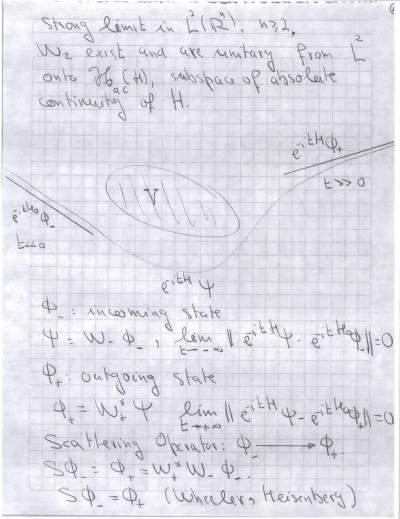 strong limit in L²(ℝⁿ), n≥2.
W± exist and are unitary from L²
onto ℋac(H), subspace of absolute
continuity of H.
e^{-itH}Φ₊
t>>0
V
e^{-itH₀}Φ₋
t<<0
e^{-itH}Ψ
Φ₋: incoming state
Ψ = W₋Φ₋, lim_{t→-∞} ‖e^{-itH}Ψ - e^{-itH₀}Φ₋‖=0
Φ₊: outgoing state
Φ₊ = W₊*Ψ lim_{t→+∞} ‖e^{-itH}Ψ - e^{-itH₀}Φ₊‖=0
Scattering Operator: Φ₋ ⟶ Φ₊.
SΦ₋ = Φ₊ = W₊*W₋Φ₋.
SΦ₋ = Φ₊ (Wheeler, Heisenberg)